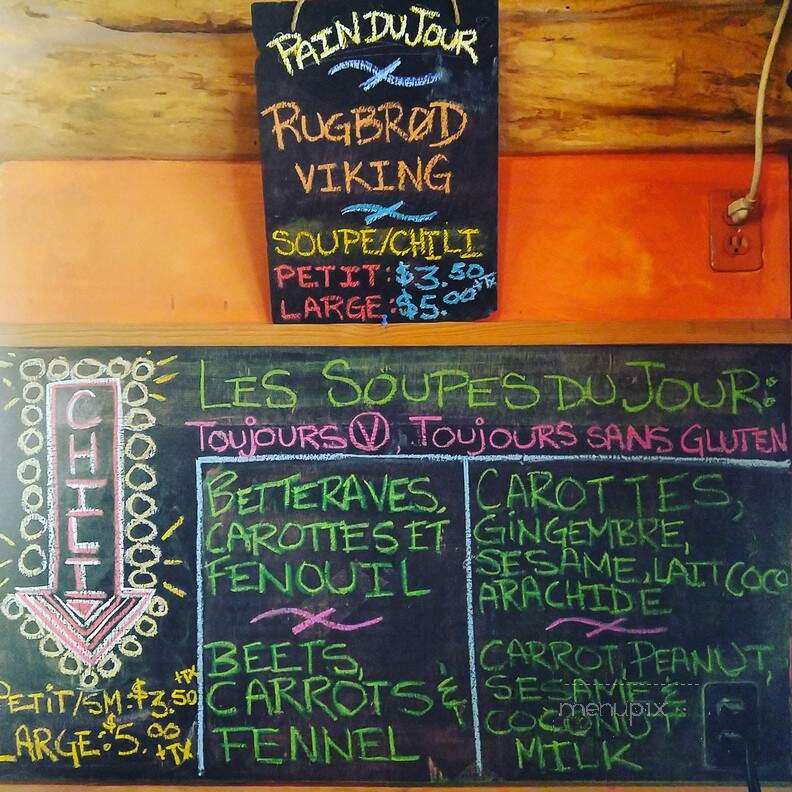 PAIN DU JOUR
RUGBRØD
VIKING
SOUPE/CHILI
PETIT: $3.50
LARGE: $5.00 +TX
LES SOUPES DU JOUR:
TOUJOURS Ⓥ, TOUJOURS SANS GLUTEN
CHILI
PETIT/SM: $3.50 +TX
LARGE: $5.00 +TX
BETTERAVES,
CAROTTES ET
FENOUIL
BEETS,
CARROTS &
FENNEL
CAROTTES,
GINGEMBRE,
SESAME, LAIT COCO
ARACHIDE
CARROT, PEANUT,
SESAME &
COCONUT
MILK
menupix